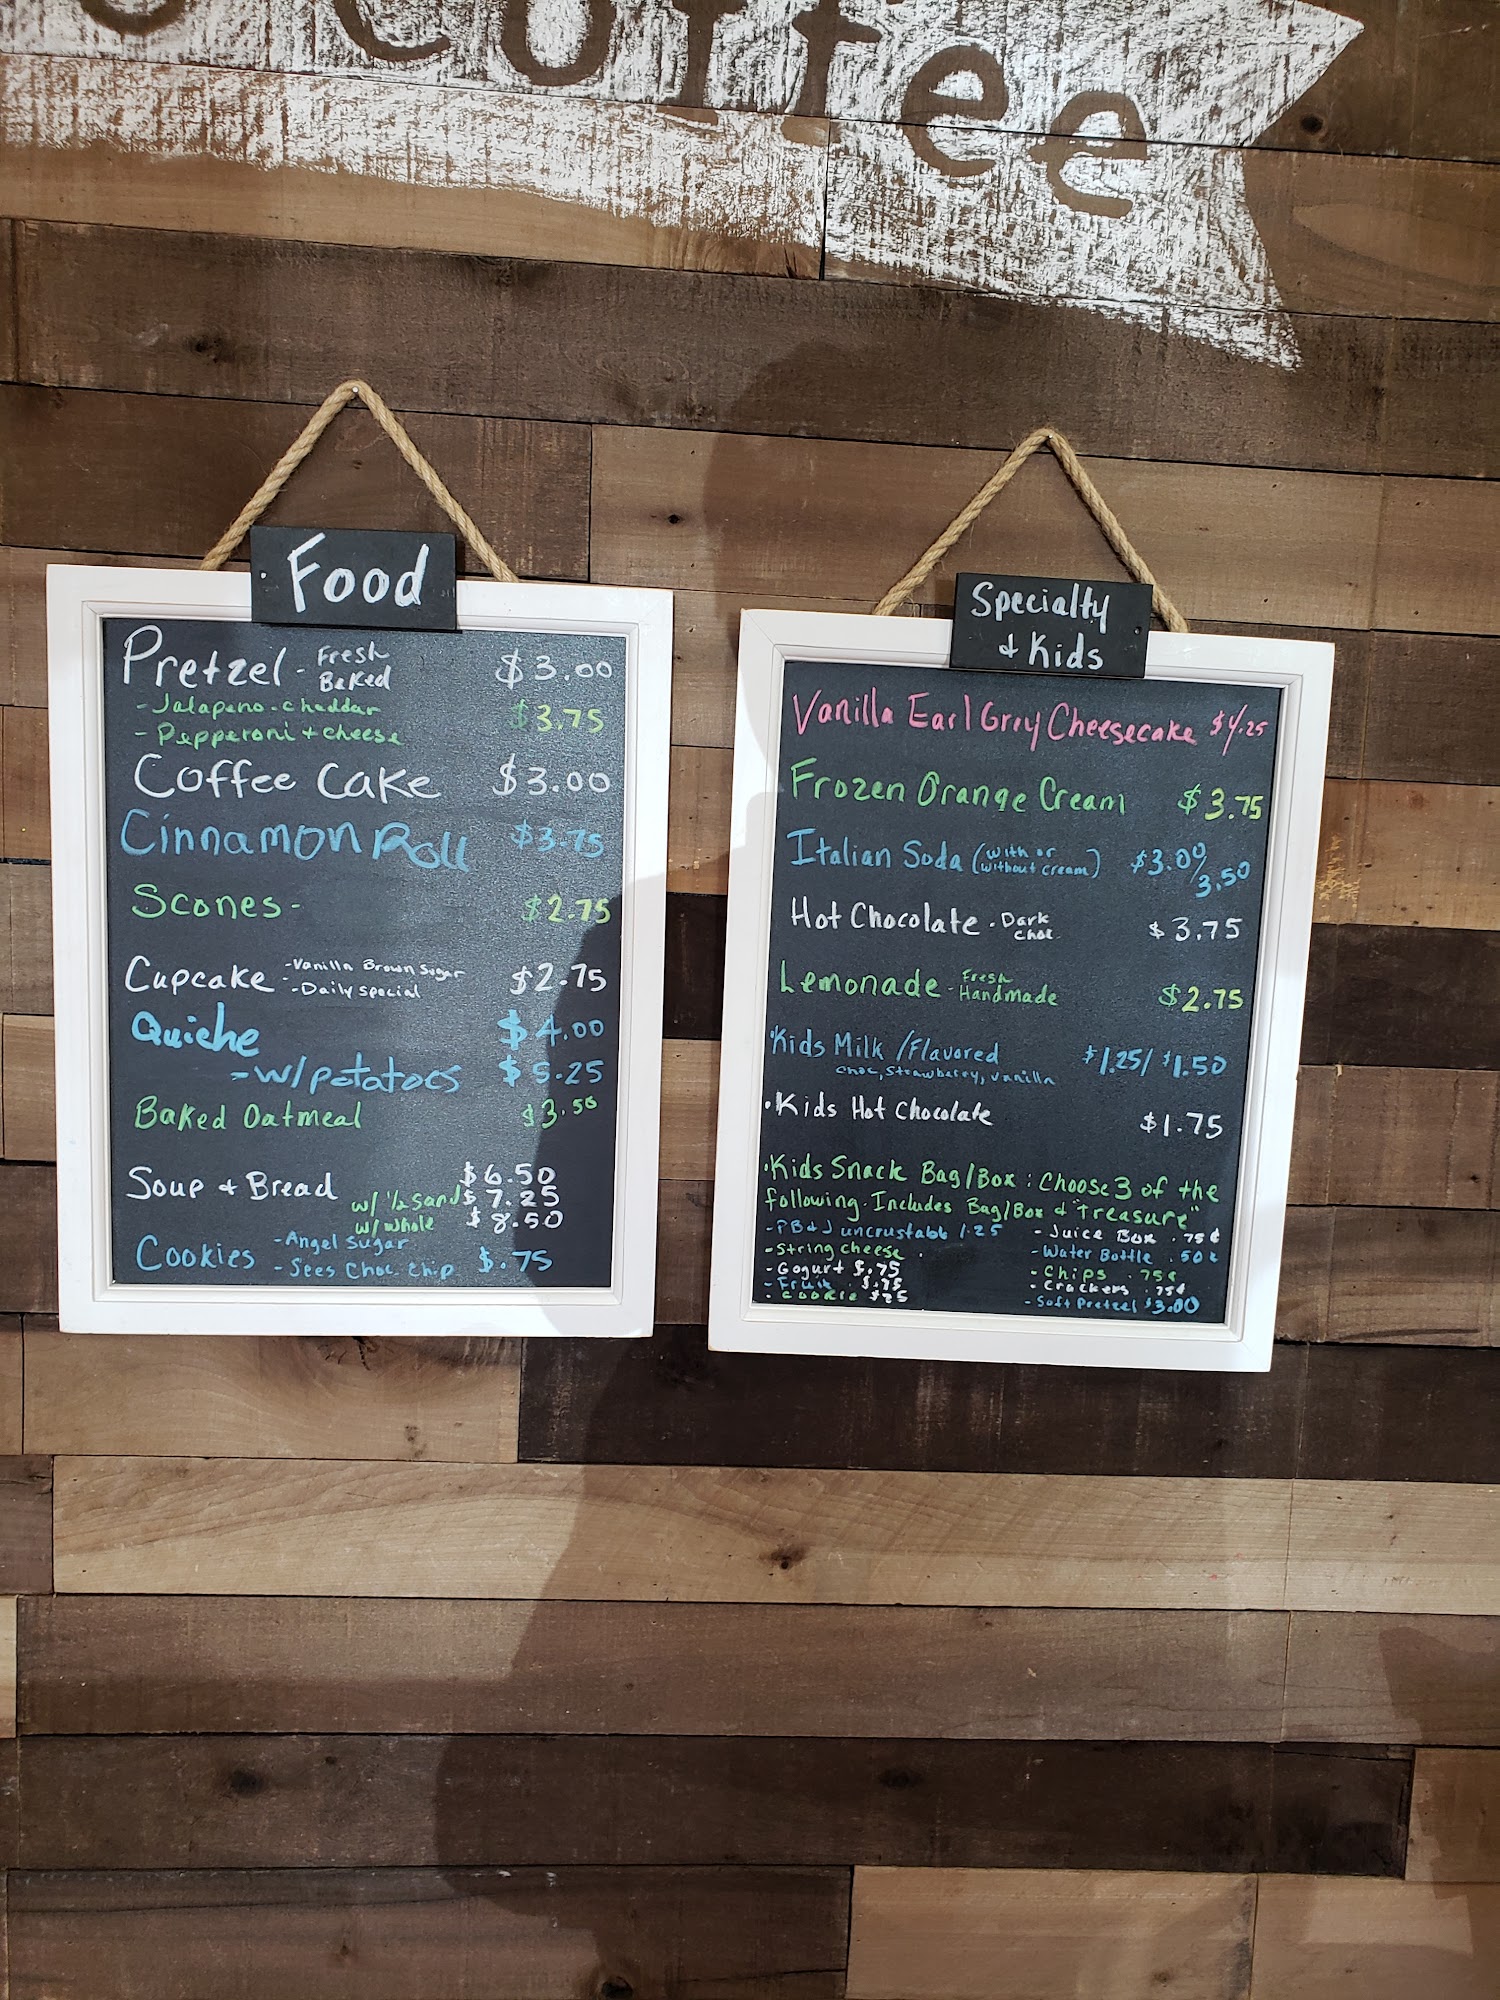 Coffee
Food
Pretzel - Fresh Baked $3.00
- Jalapeno-cheddar $3.75
- Pepperoni + cheese
Coffee Cake $3.00
Cinnamon Roll $3.75
Scones - $2.75
Cupcake - Vanilla Brown Sugar $2.75
- Daily special
Quiche $4.00
- w/potatoes $5.25
Baked Oatmeal $3.50
Soup + Bread $6.50
w/ 1/2 sand $7.25
w/ whole $8.50
Cookies - Angel Sugar $.75
- Sees Choc. chip
Specialty
+ Kids
Vanilla Earl Grey Cheesecake $4.25
Frozen Orange Cream $3.75
Italian Soda (with or without cream) $3.00/3.50
Hot Chocolate - Dark Choc $3.75
Lemonade - Fresh Handmade $2.75
·Kids Milk /Flavored $1.25/$1.50
choc, strawberry, vanilla
·Kids Hot Chocolate $1.75
·Kids Snack Bag/Box : Choose 3 of the
following. Includes Bag/Box + "Treasure"
- PB+J uncrustable 1.25
- String cheese .
- Gogurt $.75
- Fruit $.75
- Cookie
- Juice Box .75¢
- Water Bottle .50¢
- Chips .75¢
- Crackers .75¢
- Soft Pretzel $3.00